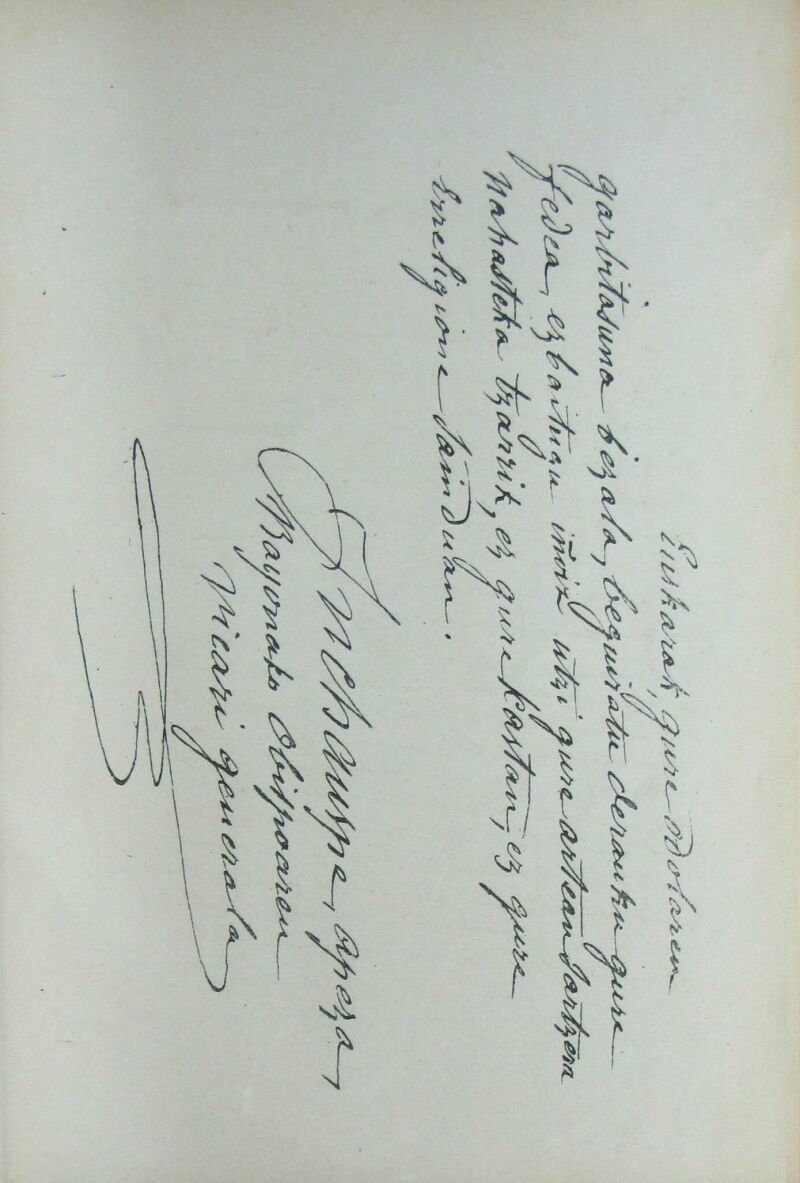 Euskarak, gure odolaren
garbitasuna bezala, beguiratu derauku gure
fedea, ezbaitugu inoiz utzi gure artean sartzera
nahasteka tzarrik, ez gure kastan, ez gure
Erreligione sainduan.
Inchauspe, apeza,
Bayonako Obispoaren
vicari generala